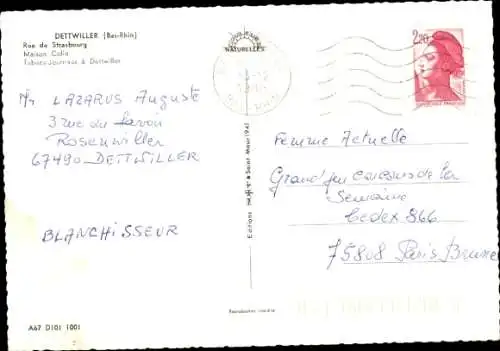 DETTWILLER (Bas-Rhin)
Rue de Strasbourg
Maison Colia
Tabacs-Journaux à Dettwiller
Mr LAZARUS Auguste
3 rue du Lavoir
Rosenwiller
67490 DETTWILLER
BLANCHISSEUR
A67 D101 1001
NATURELLES
2,20
Femme Actuelle
Grand jeu concours de la
Semaine
Cedex 866
75808 Paris Brune
Reproduction interdite